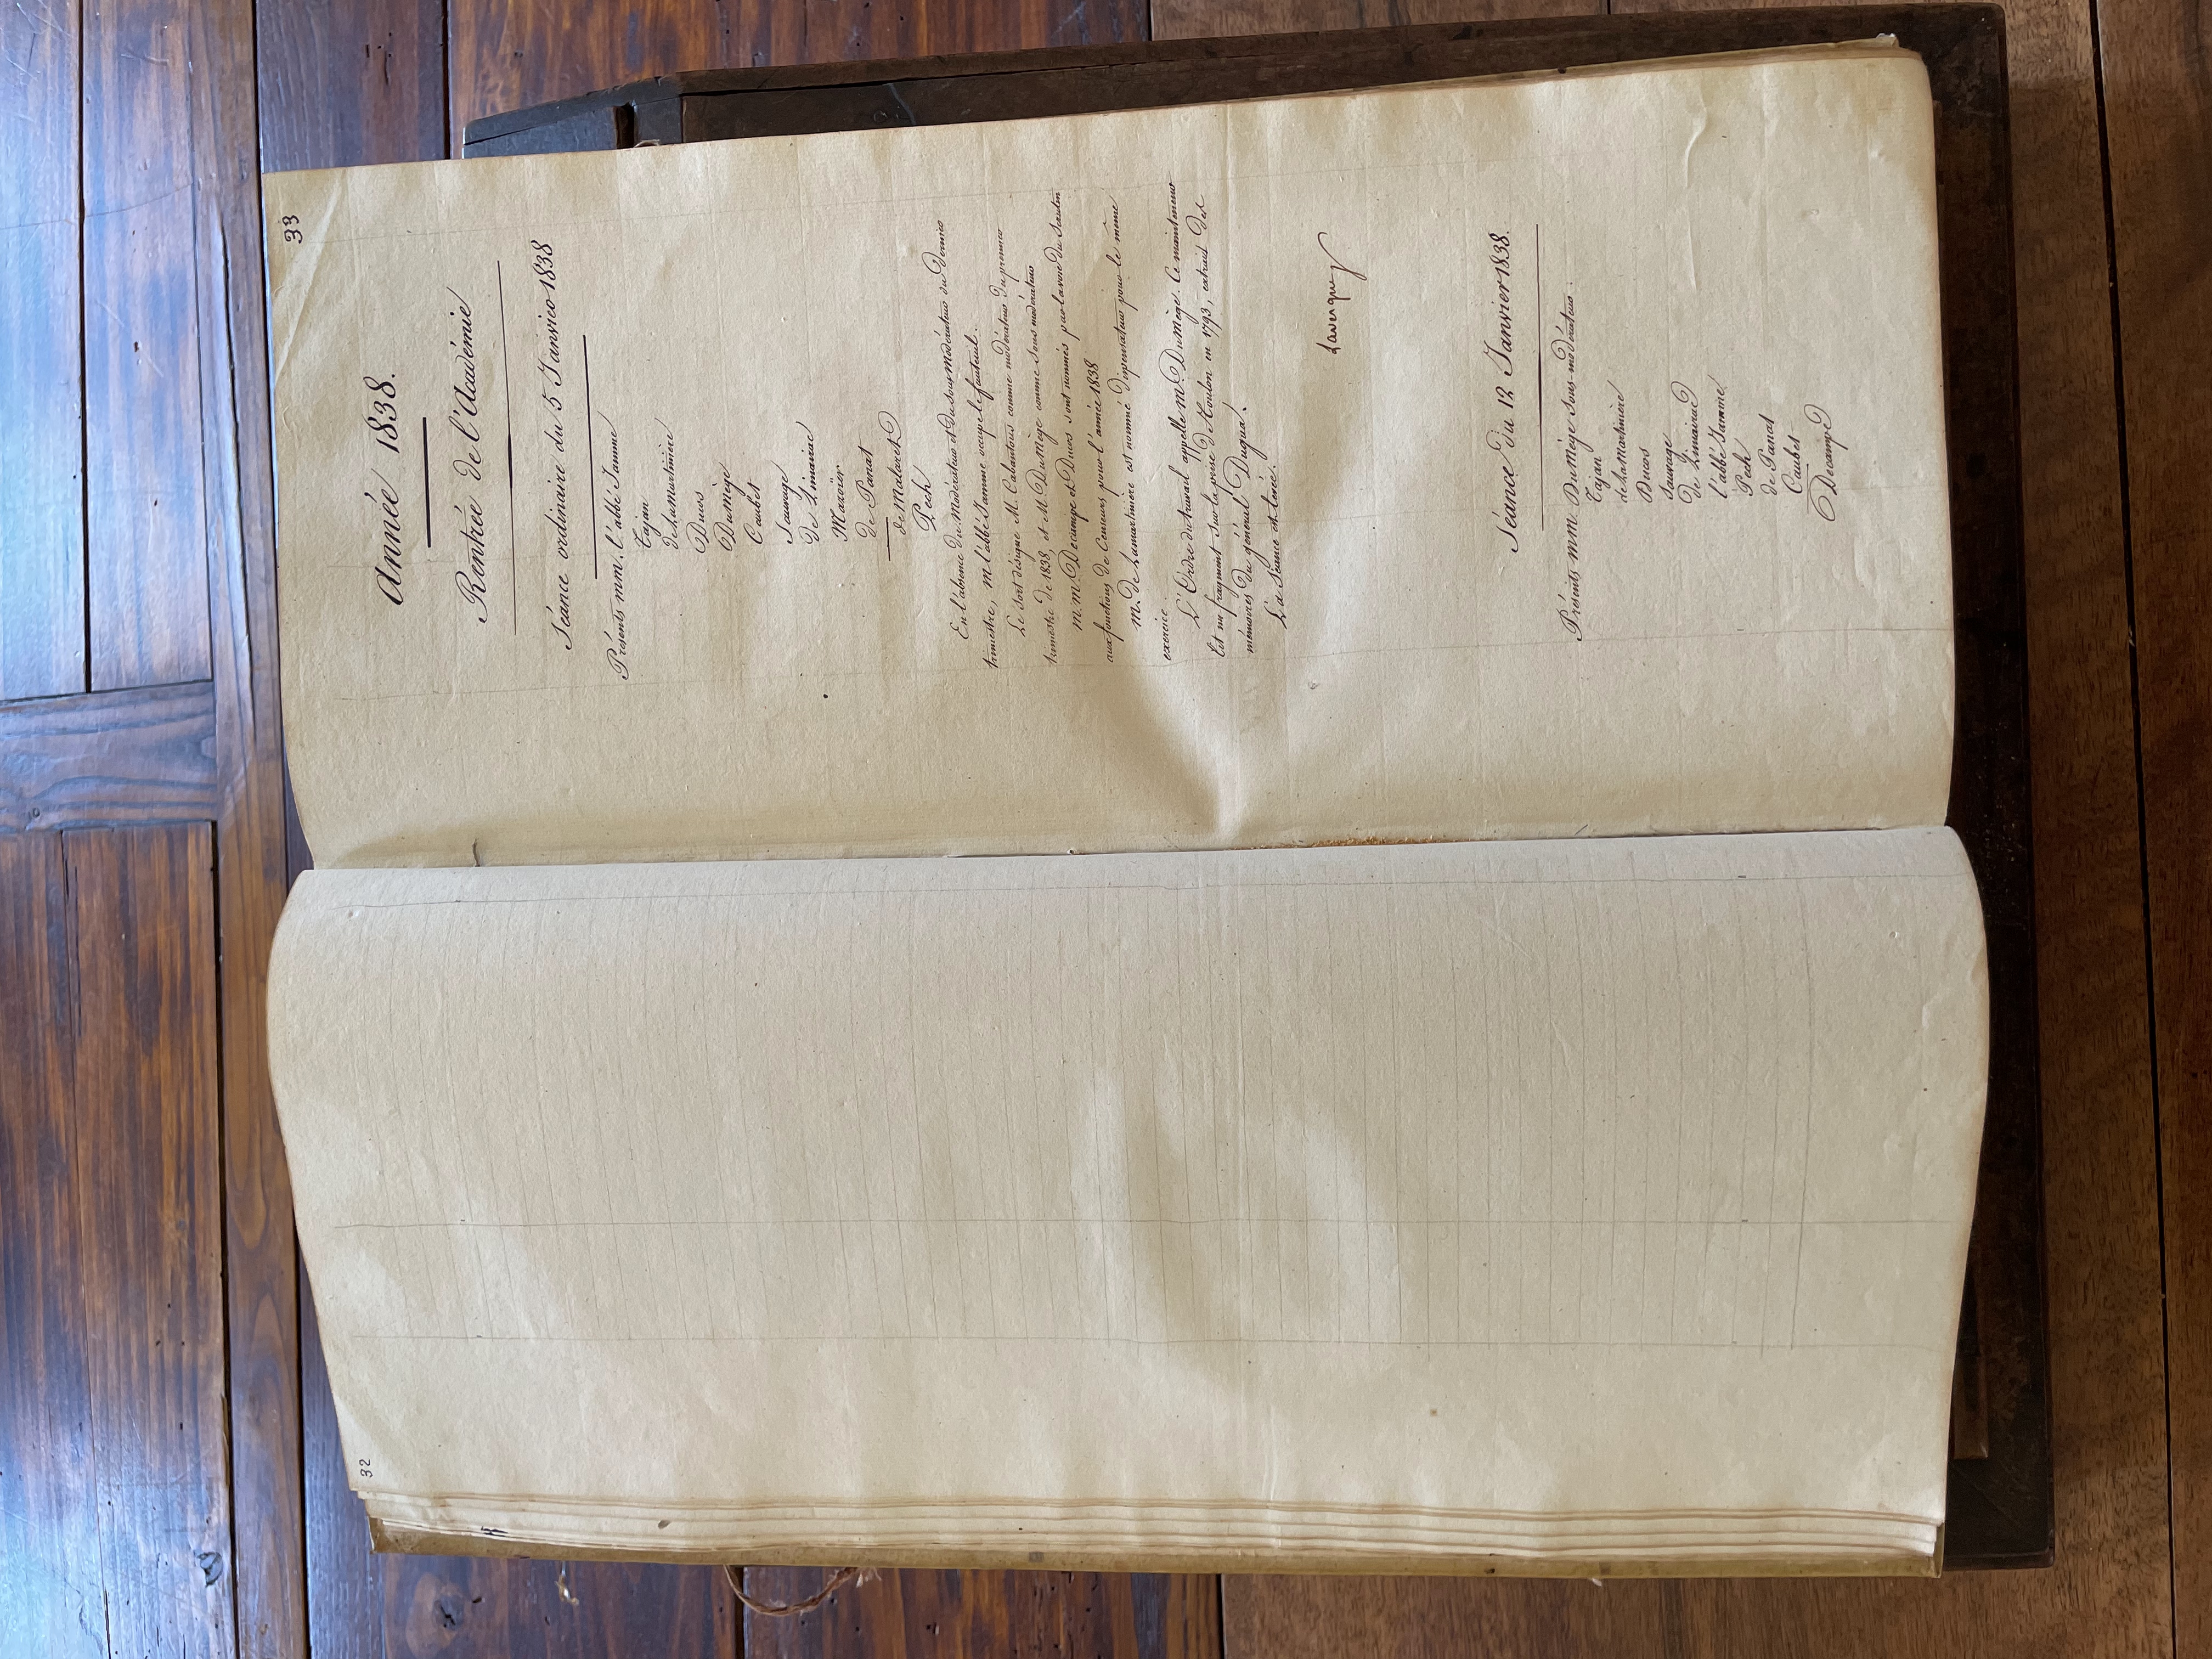 32
33
Année 1838.
Rentrée de l'Académie
Séance ordinaire du 5 Janvier 1838
Présents mm. l'abbé Jamme
Tajan
de Lamartinière
Ducos
Dumège
Caubet
Sauvage
De Limairac
Mazoïer
de Panat
de Malaret
Pech
En l'absence du Modérateur et du sous Modérateur du dernier
trimestre, M l'abbé Jamme occupe le fauteuil.
Le sort désigne M. Cabantous comme modérateur du premier
trimestre de 1838, et M. DuMège comme sous modérateur
m.m. Decampe et Ducos sont nommés par la voie du scrutin
aux fonctions de Censeurs pour l'année 1838
M. de Lamartinière est nommé dispensateur pour le même
exercice.
L'Ordre du travail appelle m. DuMège. Ce mainteneur
lit un fragment sur la prise de Toulon en 1793, extrait des
mémoires du général Dugua.
La Séance est levée.
Lavergne
Séance du 12 Janvier 1838.
Présents mm. DuMège sous-modérateur.
Tajan
de Lamartinière
Ducos
Sauvage
De Limairac
l'abbé Jamme
Pech
de Panat
Caubet
Decampe